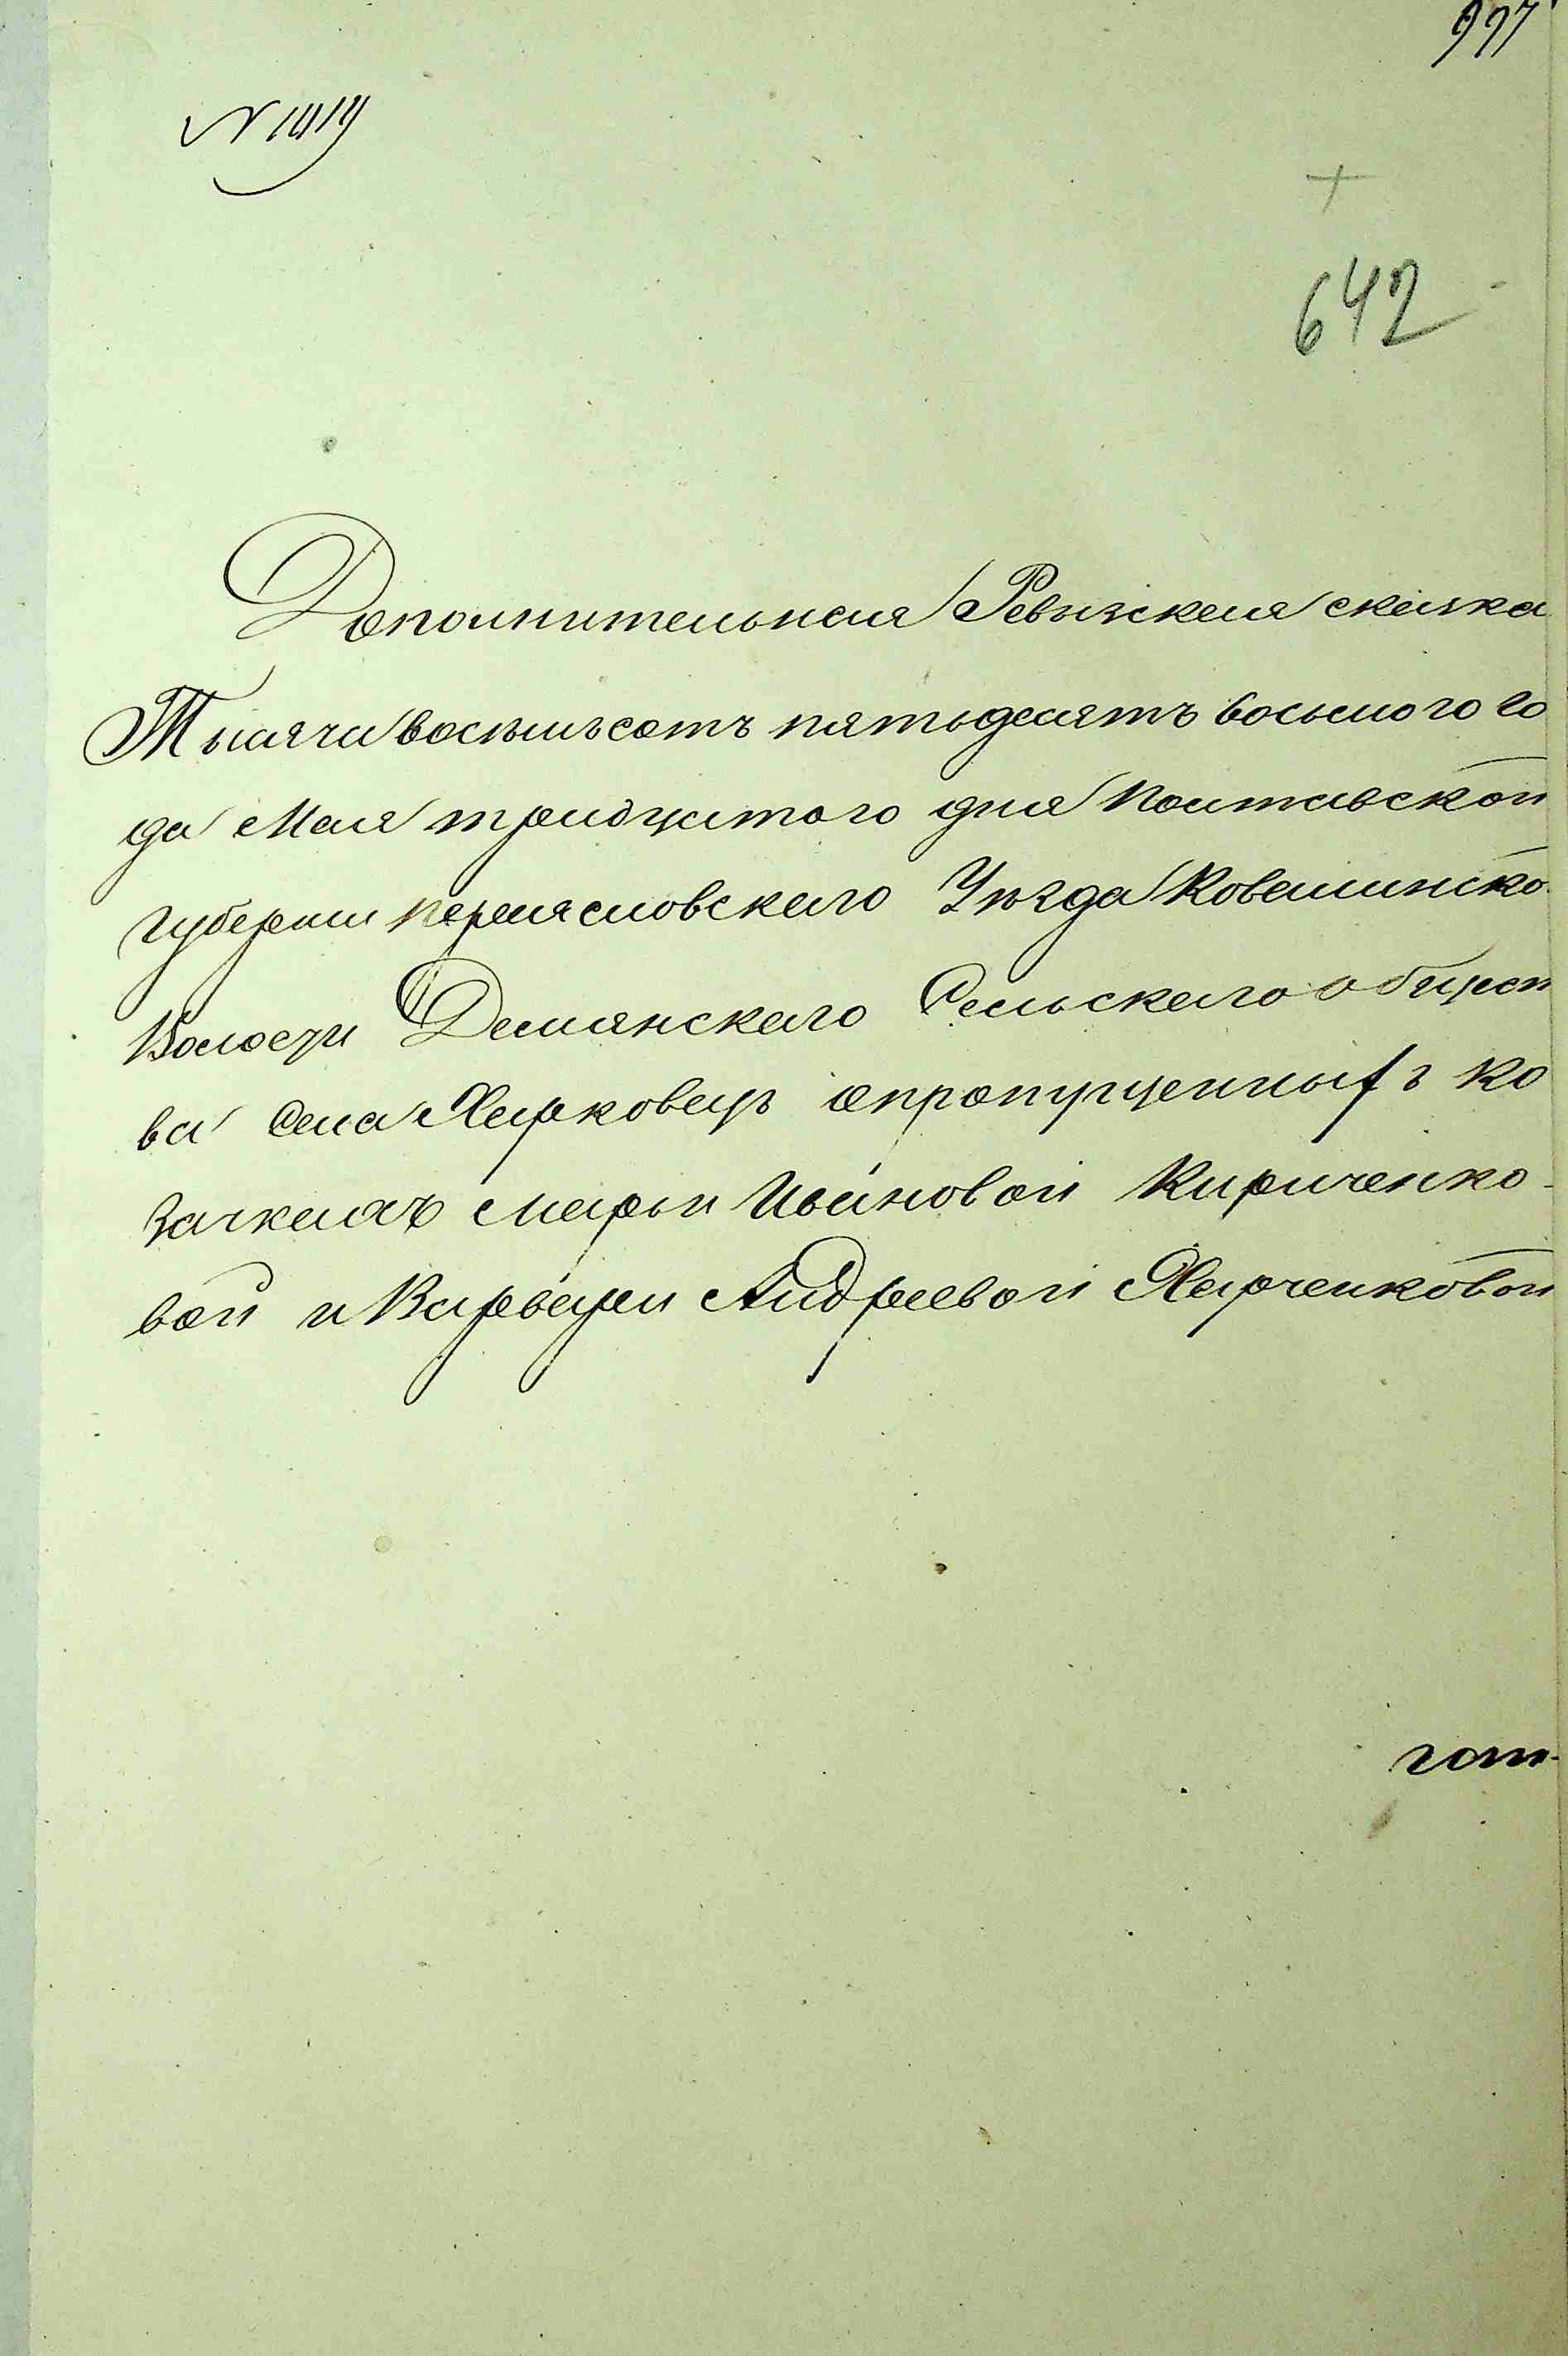 997
N 1419
+
642
Дополнительная Ревизская сказка
Тысяча восемьсотъ пятьдесятъ восьмого го
да Мая тридцатого дня Полтавской
губернии Переясловского Уѣзда Ковалинско
Волости Демянского Сельского общест
ва Села Харковець опропущенныхъ ко
зачкахъ Марьи Ивановой Кириченко-
вой и Варвары Андреевой Харченковой